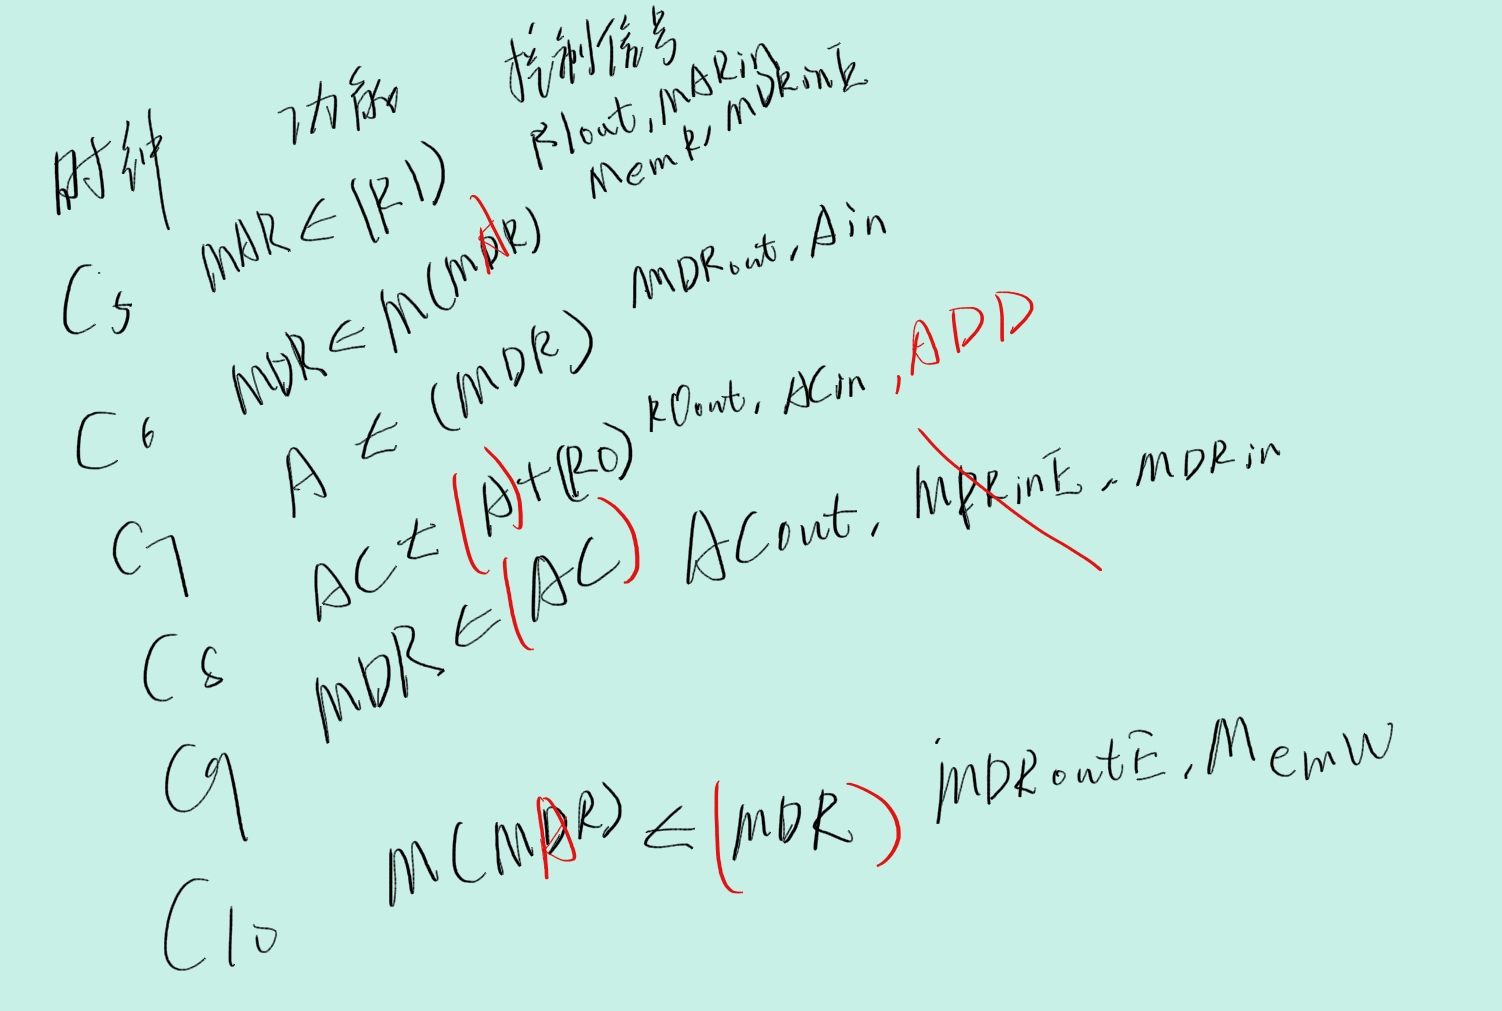 时钟 功能 控制信号
C5 MAR ← (R1) R1out, MARin
C6 MDR ← M(MAR) MemR, MDRinE
C7 A ← (MDR) MDRout, Ain
C8 AC ← (A)+(R0) R0out, ACin, ADD
C9 MDR ← (AC) ACout, MDRinE, MDRin
C10 M(MAR) ← (MDR) MDRoutE, MemW